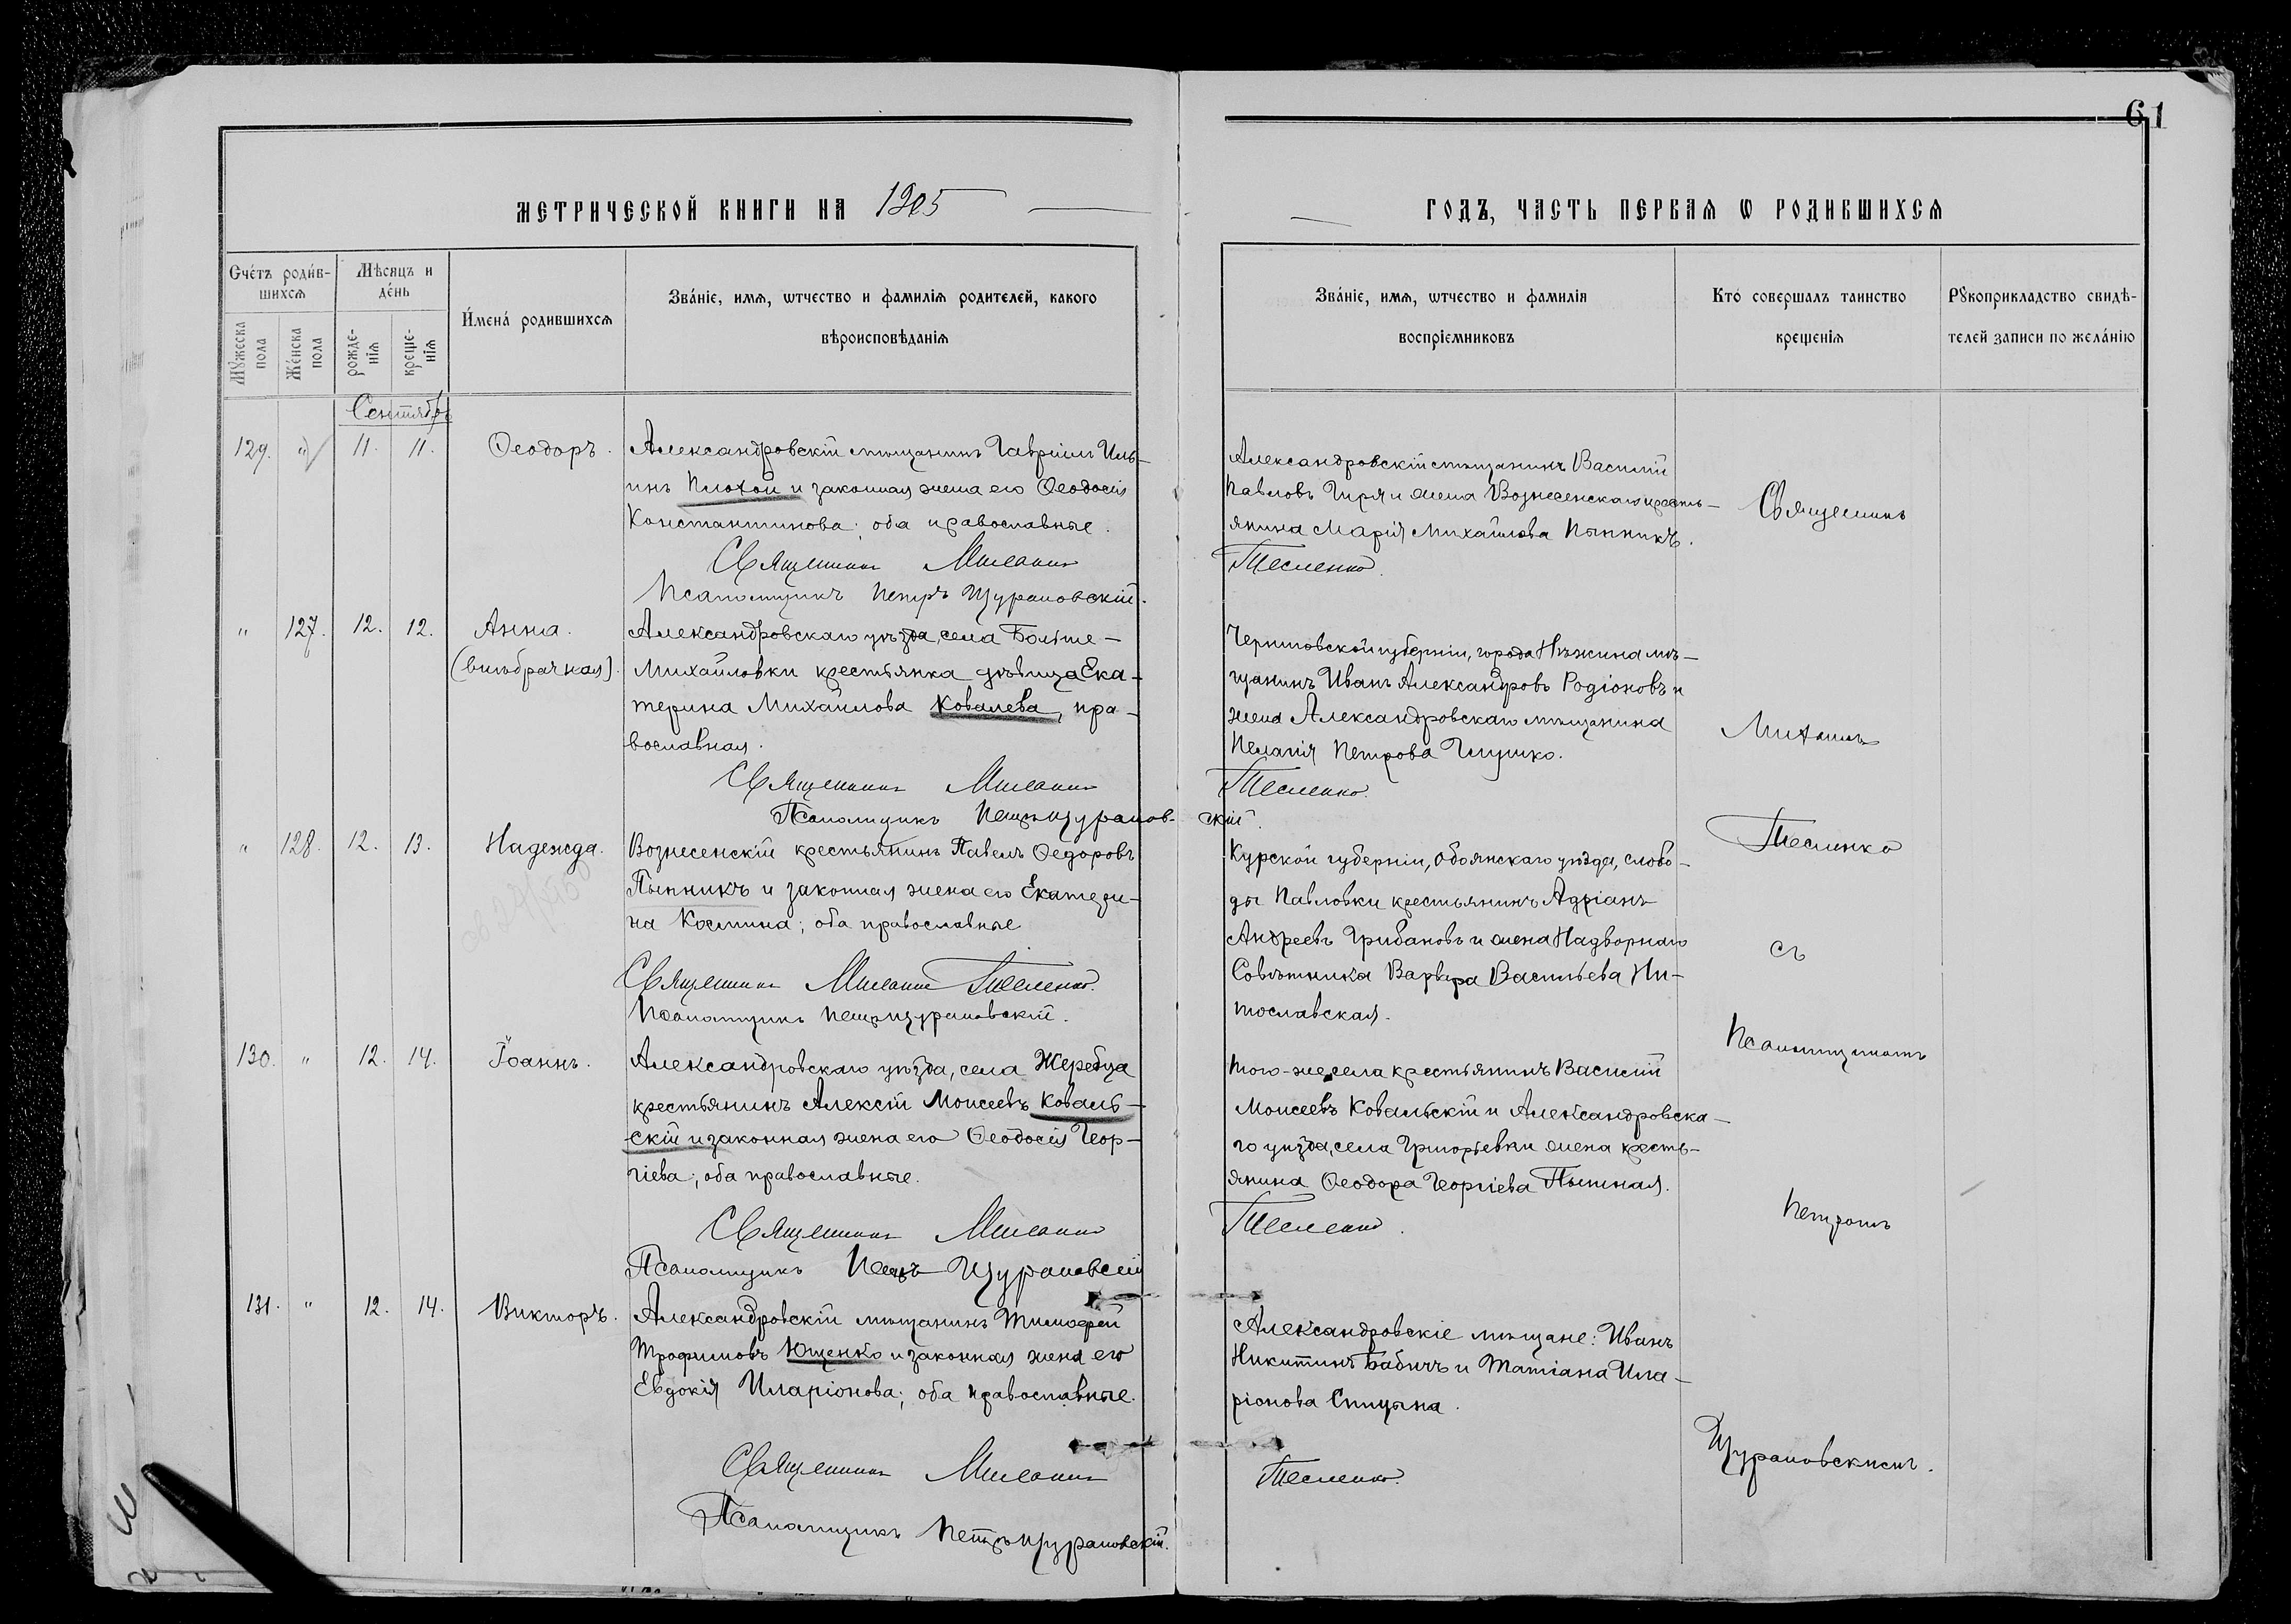 61
МЕТРИЧЕСКОЙ КНИГИ НА 1905
ГОДЪ, ЧАСТЬ ПЕРВАЯ Ѡ РОДИВШИХСЯ
Счéтъ роди́в-
шихсѧ
Мѣсяцъ и
де́нь
Мꙋжеска
пола
Же́нска
пола
рожде-
нїѧ
креще-
нїѧ
И́мена́ родившихсѧ
Зва́нїе, имѧ, ѡтчество и фамилїѧ родителей, какого
вѣроисповѣданїѧ
Зва́нїе, имѧ, ѡтчество и фамилїѧ
воспрїемниковъ
Кто́ совершалъ таинство
крещенїѧ
Рꙋкоприкладство свидѣ-
телей записи по жела́нїю
Сентябрь
129. " 11. 11. Ѳеодоръ.
Александровскій мѣщанинъ Гавріилъ Иль-
инъ Плохой и законная жена его Ѳеодосія
Константинова; оба православные.
Священникъ Михаилъ
Псаломщикъ Петръ Щурановскій.
Александровскій мѣщанинъ Василій
Павловъ Гиря и жена Вознесенскаго кресть-
янина Марія Михайлова Пынникъ.
Тесленко.
" 127. 12. 12. Анна.
(внѣбрачная).
Александровскаго уѣзда, села Больше-
Михайловки крестьянка дѣвица Ека-
терина Михайлова Ковалева, пра-
вославная.
Священникъ Михаилъ
Псаломщикъ Петръ Щуранов-
Черниговской губерніи, города Нѣжина мѣ-
щанинъ Иванъ Александровъ Родіоновъ и
жена Александровскаго мѣщанина
Пелагія Петрова Глушко.
Тесленко.
скій.
" 128. 12. 13. Надежда.
Вознесенскій крестьянинъ Павелъ Ѳедоровъ
Пынникъ и законная жена его Екатери-
на Космина; оба православные
Священникъ Михаилъ Тесленко.
Псаломщикъ Петръ Щурановскій.
Курской губерніи, Обоянскаго уѣзда, слобо-
ды Павловки крестьянинъ Адріанъ
Андреевъ Грибановъ и жена Надворнаго
Совѣтника Варвара Васильева
130. " 12. 14. Іоаннъ.
Александровскаго уѣзда, села Жеребца
крестьянинъ Алексій Моисеевъ Коваль-
скій и законная жена его Ѳеодосія Геор-
гіева; оба православные.
Священникъ Михаилъ
Псаломщикъ Петръ Щурановскій
Того-же села крестьянинъ Василій
Моисеевъ Ковальскій и Александровска-
го уѣзда, села Григорьевки жена кресть-
янина Ѳеодора Георгіева Пышная.
Тесленко.
131. " 12. 14. Викторъ.
Александровскій мѣщанинъ Тимофей
Трофимовъ Ющенко и законная жена его
Евдокія Иларіонова; оба православные.
Священникъ Михаилъ
Псаломщикъ Петръ Щурановскій.
Александровскіе мѣщане: Иванъ
Никитинъ Бабичъ и Татіана Ила-
ріонова Спицына.
Тесленко.
Священникъ
Михаилъ
Тесленко
съ
Псаломщикомъ
Петромъ
Щурановскимъ.